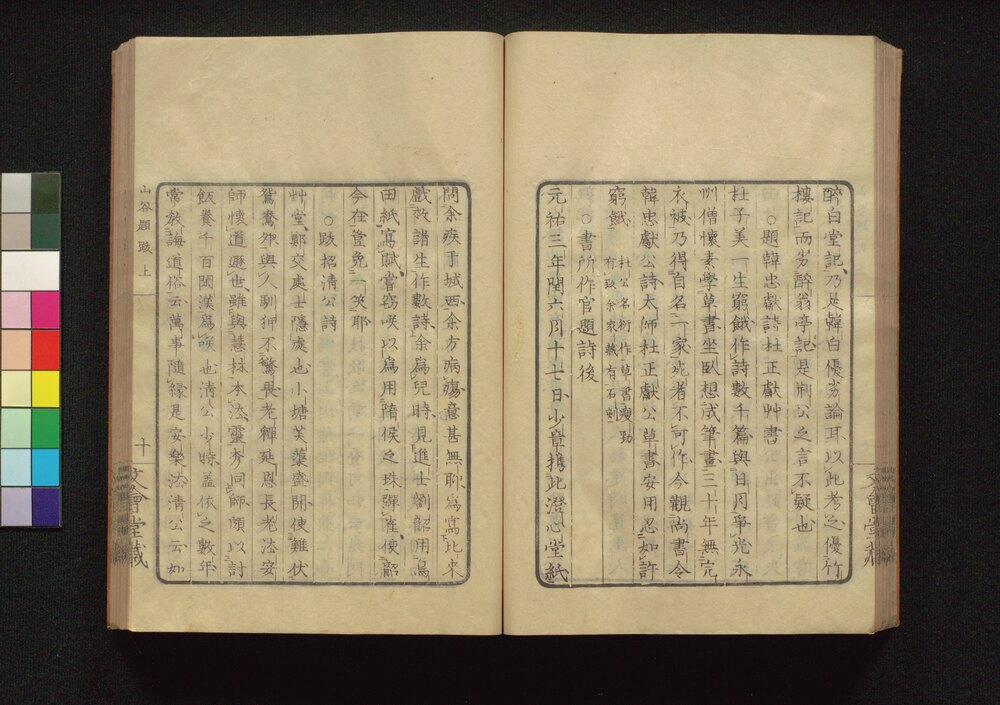 醉白堂記乃是韓白優劣論耳以此考之優竹
樓記而劣醉翁亭記是荊公之言不疑也
○題韓忠獻詩杜正獻艸書
杜子美一生窮餓作詩數千篇與日月爭光永
州僧懷素學草書坐臥想成筆畫三十年無完
衣被乃得自名一家或者不可作今觀尚書令
韓忠獻公詩太師杜正獻公草書安用忍如許
窮餓
杜公名衍作草書瘦勁
有致余家藏有石刻
○書所作官題詩後
元祐三年閏六月十七日少章攜此澄心堂紙
問余疾于城西余方病瘍意甚無聊爲寫比來
戲效諸生作數詩余爲兒時見進士劉韶用烏
田紙寫賦嘗竊咲以爲用隋侯之珠彈雀使韶
今在豈免一笑耶
○跋招清公詩
艸堂鄭交處士隱處也小塘芙蕖盛開使雞伏
鴛鴦卵與人馴狎不驚畏老禪延恩長老法安
師懷道遯世雖與慧林本法靈秀同師頗以討
飯養千百閑漢爲咲也清公少時蓋依之數年
常放誨道俗云萬事隨緣是安樂法清公云如
山谷題跋 上
十
文會堂藏
文會堂藏